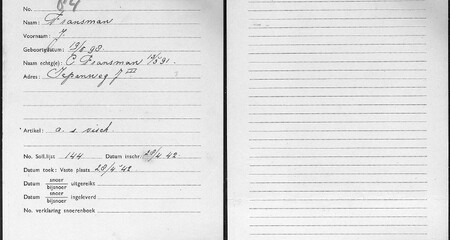 No. 84
Naam: Fransman
Voornaam: J.
Geboortedatum: 13/6 98.
Naam echtg(e): C Fransman 19/5 91.
Adres: Iepenweg 7 III
Artikel: a. s. visch.
No. Soll.lijst 144 Datum inschr. 29/4 42
Datum toek: Vaste plaats 29/4 '42
Datum snoer / bijsnoer uitgereikt
Datum snoer / bijsnoer ingeleverd
No. verklaring snoerenboek